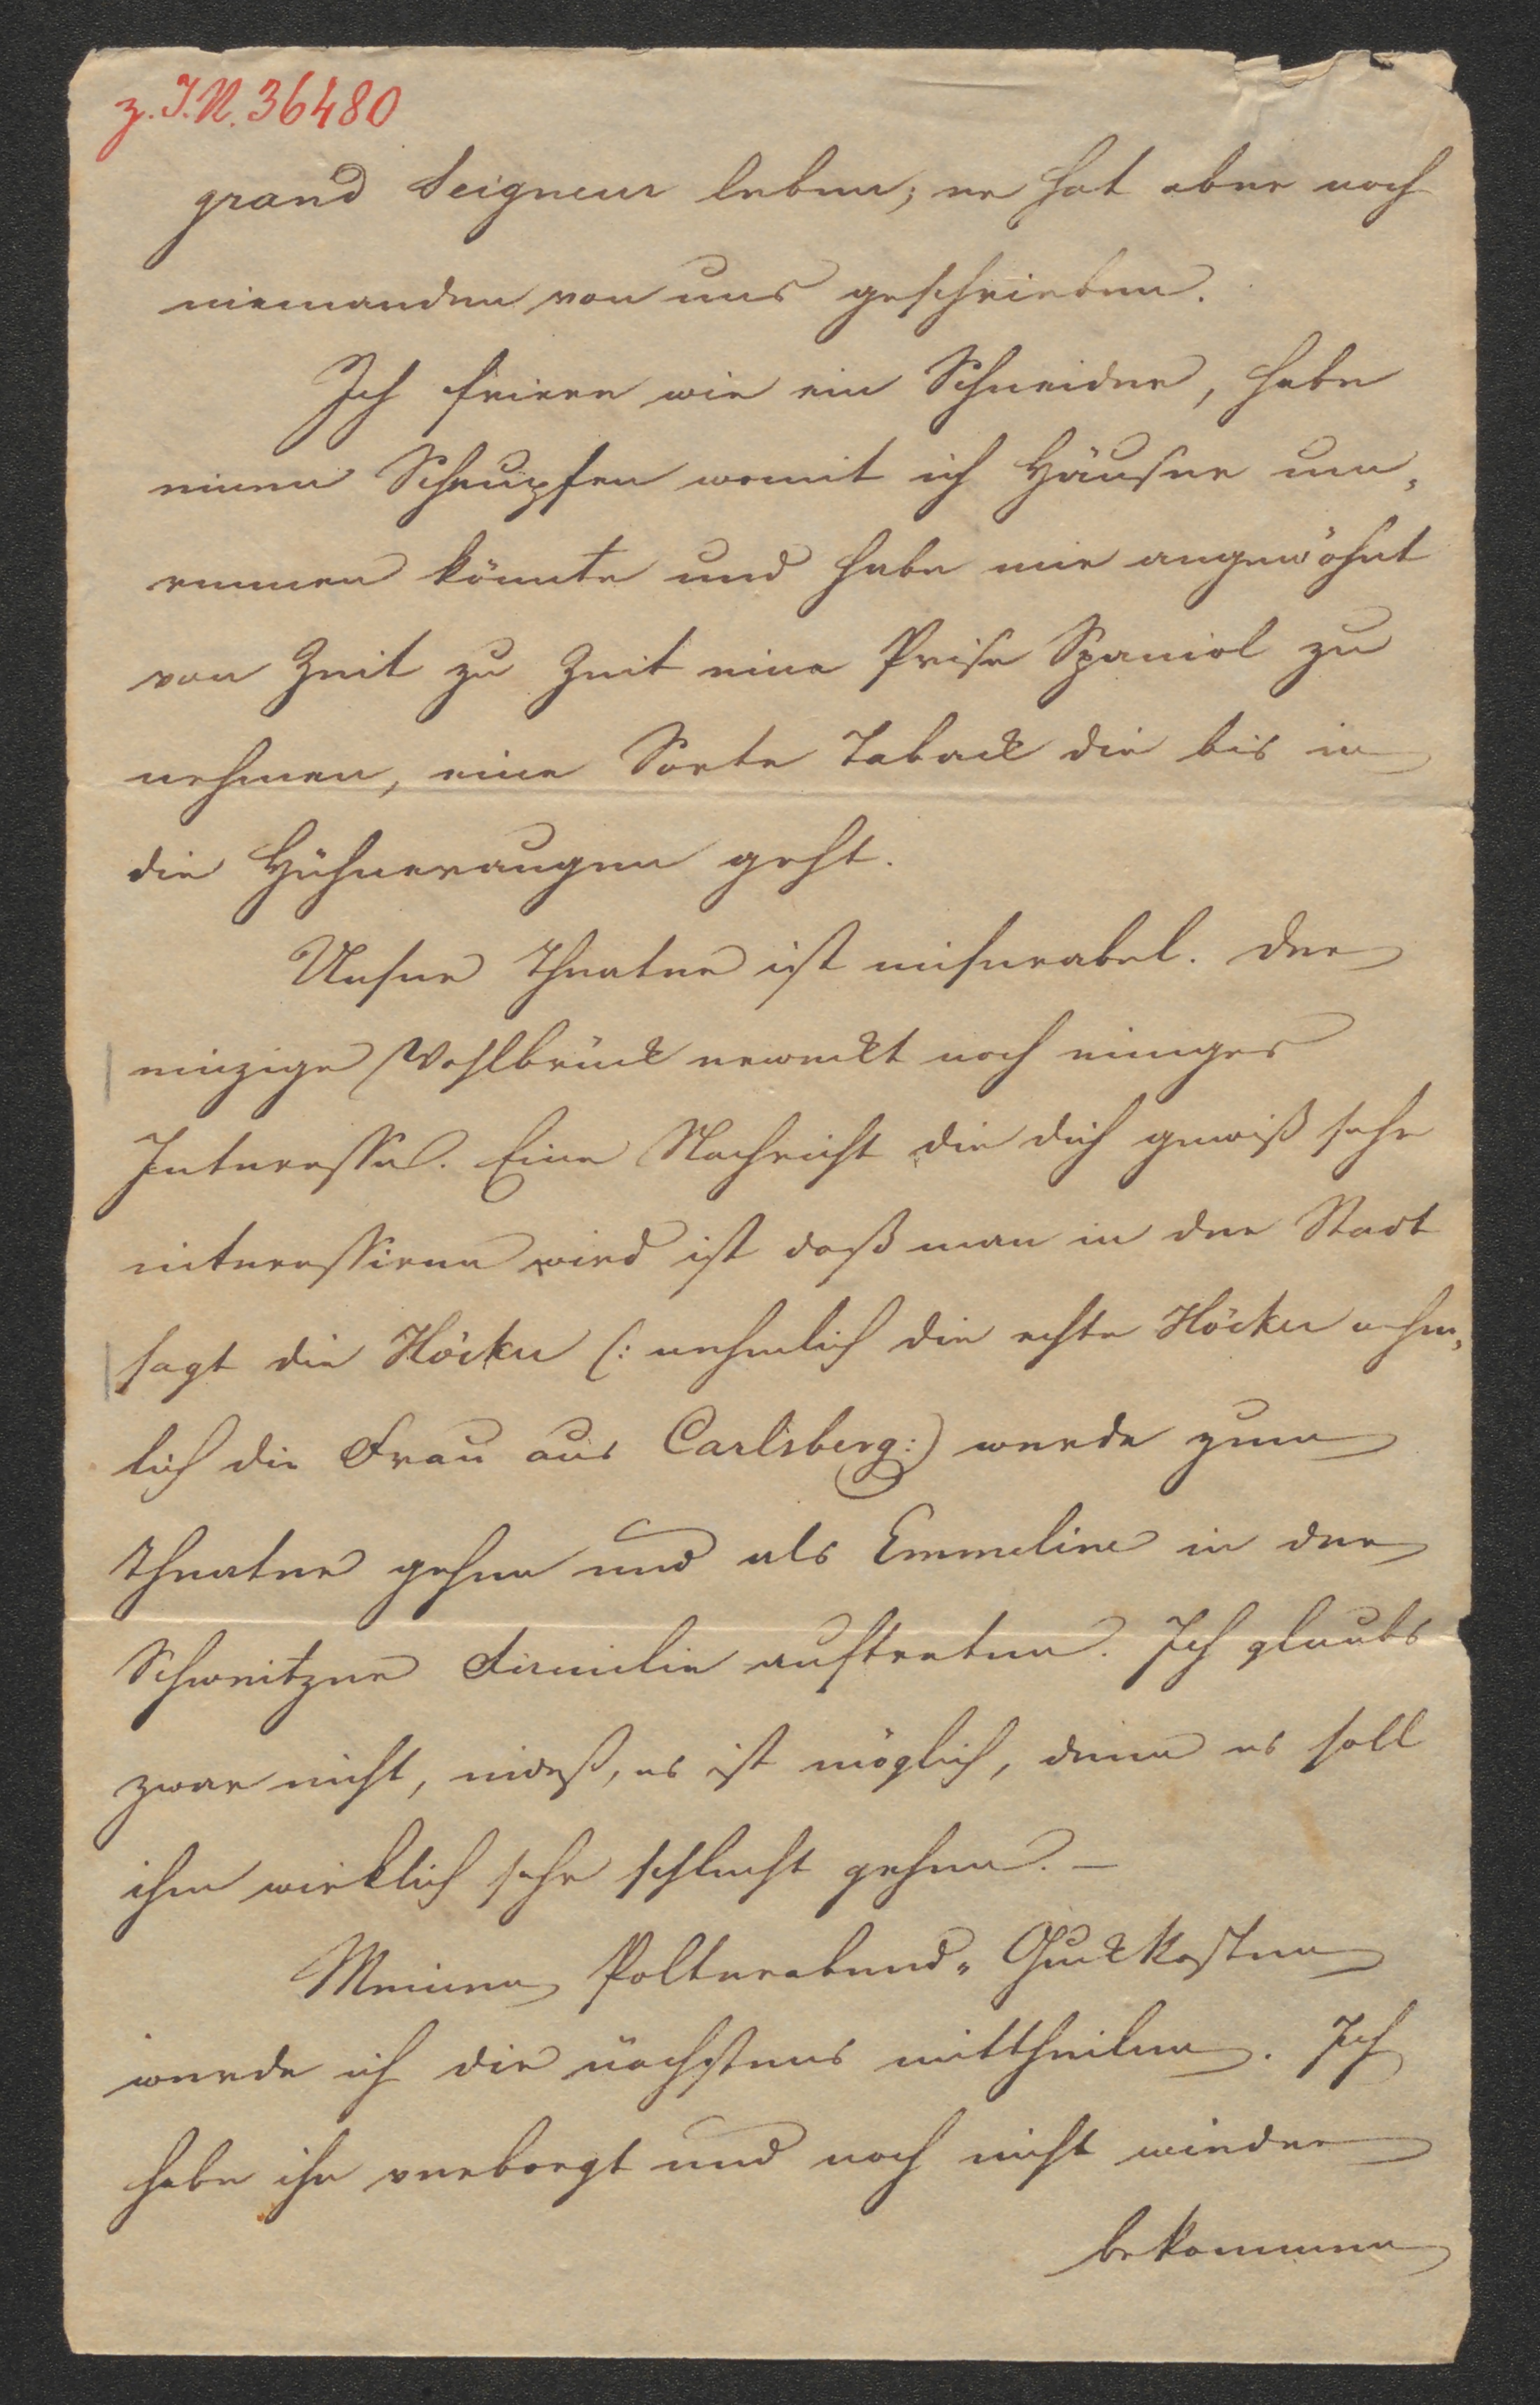 z. I.N. 36480
grand Seigneur leben; er hat aber noch
niemanden von uns geschrieben.
Ich friere wie ein Schneider, habe
einen Schnupfen womit ich Häuser um„
rennen könnte und habe mir angewöhnt
von Zeit zu Zeit eine Prise Spaniol zu
nehmen, eine Sorte Taback die bis in
die Hühneraugen geht.
Unser Theater ist miserabel. Der
einzige Wohlbrück erweckt noch einiges
Interesse. Eine Nachricht die dich gewiß sehr
interessiren wird ist daß man in der Stadt
sagt die Höcker (: nehmlich die echte Höcker nehm„
lich die Frau aus Carlsberg:) werde zum
Theater gehen und als Emmeline in der
Schweitzer Familie auftreten. Ich glaubs
zwar nicht, indeß, es ist möglich, denn es soll
ihm wirklich sehr schlecht gehen. –
Meinen Polterabend„ Guckkasten
werde ich dir nächstens mittheilen. Ich
habe ihn verborgt und noch nicht wieder
bekommen